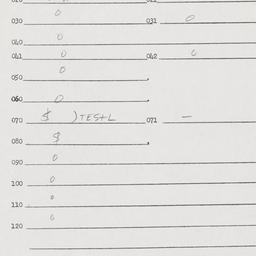 030 0 031 0
040 0
041 0 042 0
050 0
060 0
070 $ ) TEST L 071 —
080 $
090 0
100 0
110 0
120 0